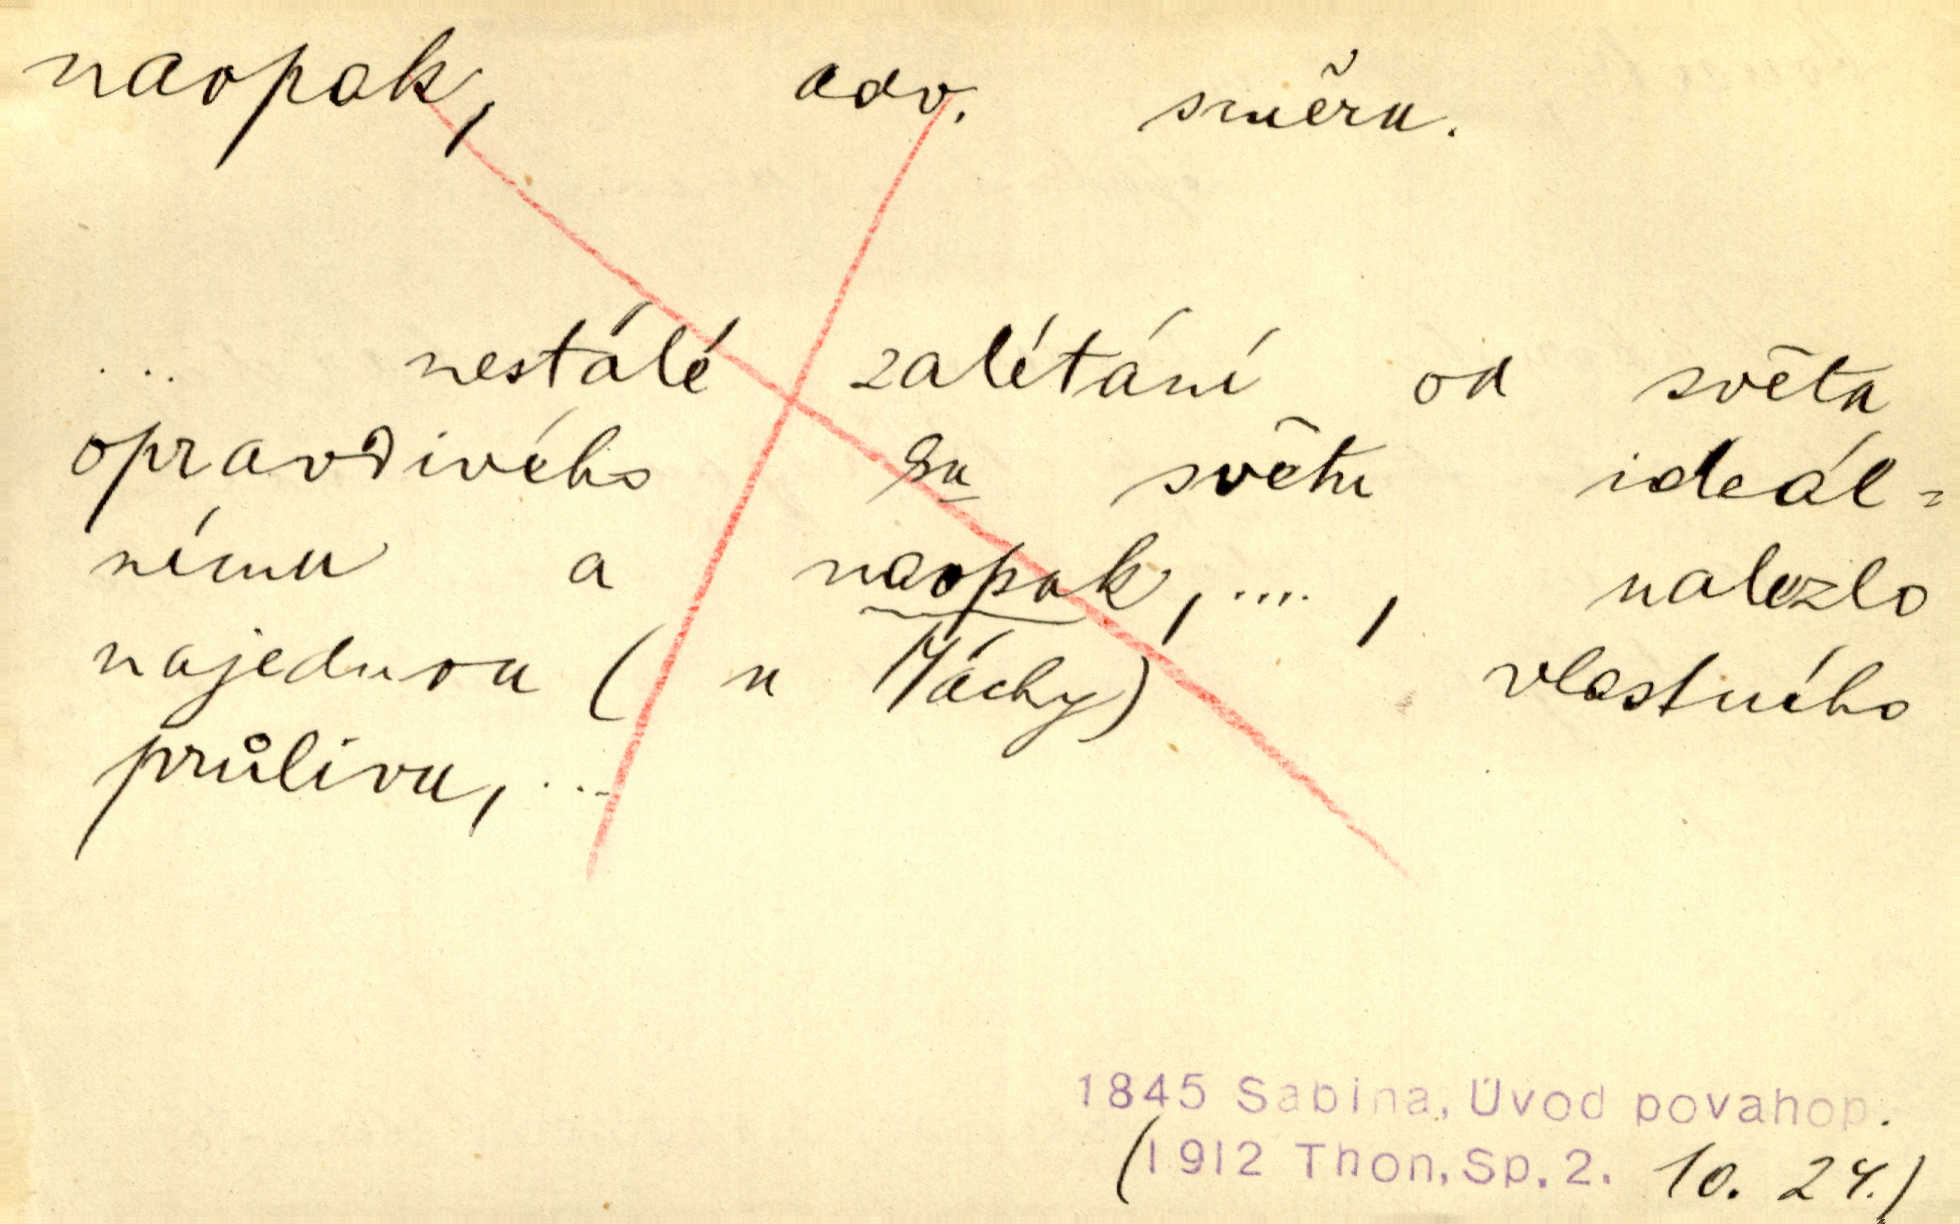 naopak, adv. směru.
... nestálé zalétání od světa
opravdivého ku světu ideál=
nému a naopak, ...., nalezlo
najednou (u Máchy) vlastného
průlivu, ...
1845 Sabina, Úvod povahop.
(1912 Thon, Sp. 2. 10. 24.)